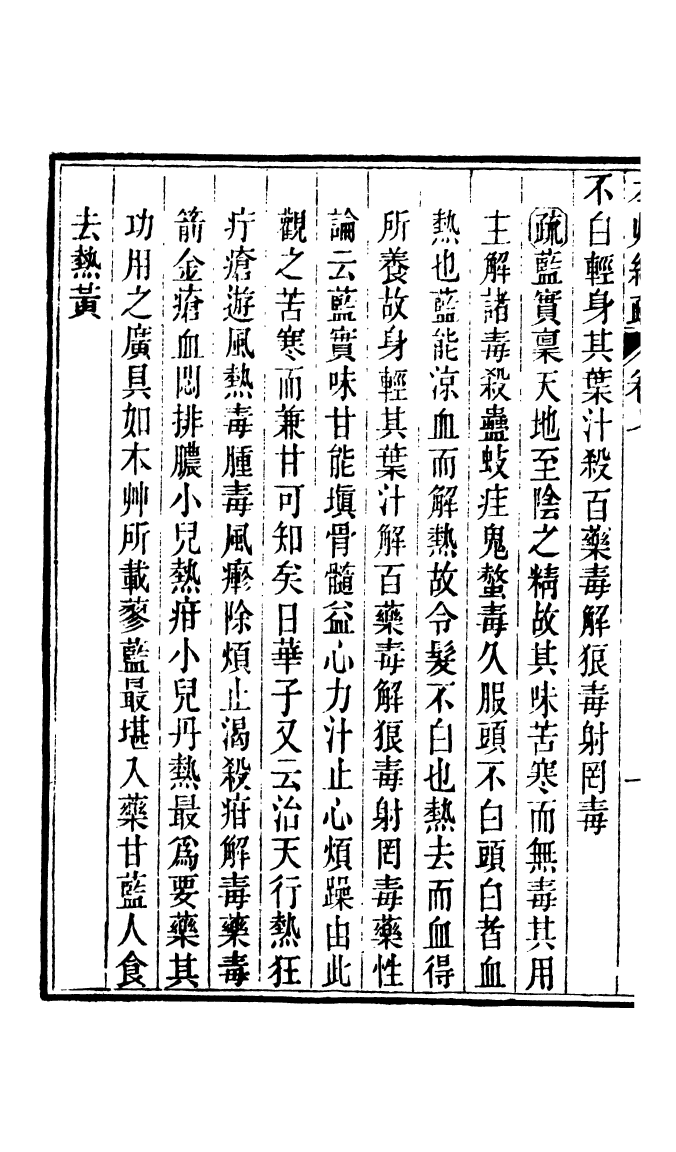 不白輕身其葉汁殺百藥毒解狼毒射罔毒
疏藍實稟天地至陰之精故其味苦寒而無毒其用
主解諸毒殺蠱蚑疰鬼螫毒久服頭不白頭白者血
熱也藍能涼血而解熱故令髮不白也熱去而血得
所養故身輕其葉汁解百藥毒解狼毒射罔毒藥性
論云藍實味甘能塡骨髓益心力汁止心煩躁由此
觀之苦寒而兼甘可知矣日華子又云治天行熱狂
疔瘡遊風熱毒腫毒風癢除煩止渴殺疳解毒藥毒
箭金瘡血悶排膿小兒熱疳小兒丹熱最爲要藥其
功用之廣具如本艸所載蓼藍最堪入藥甘藍人食
去熱黃